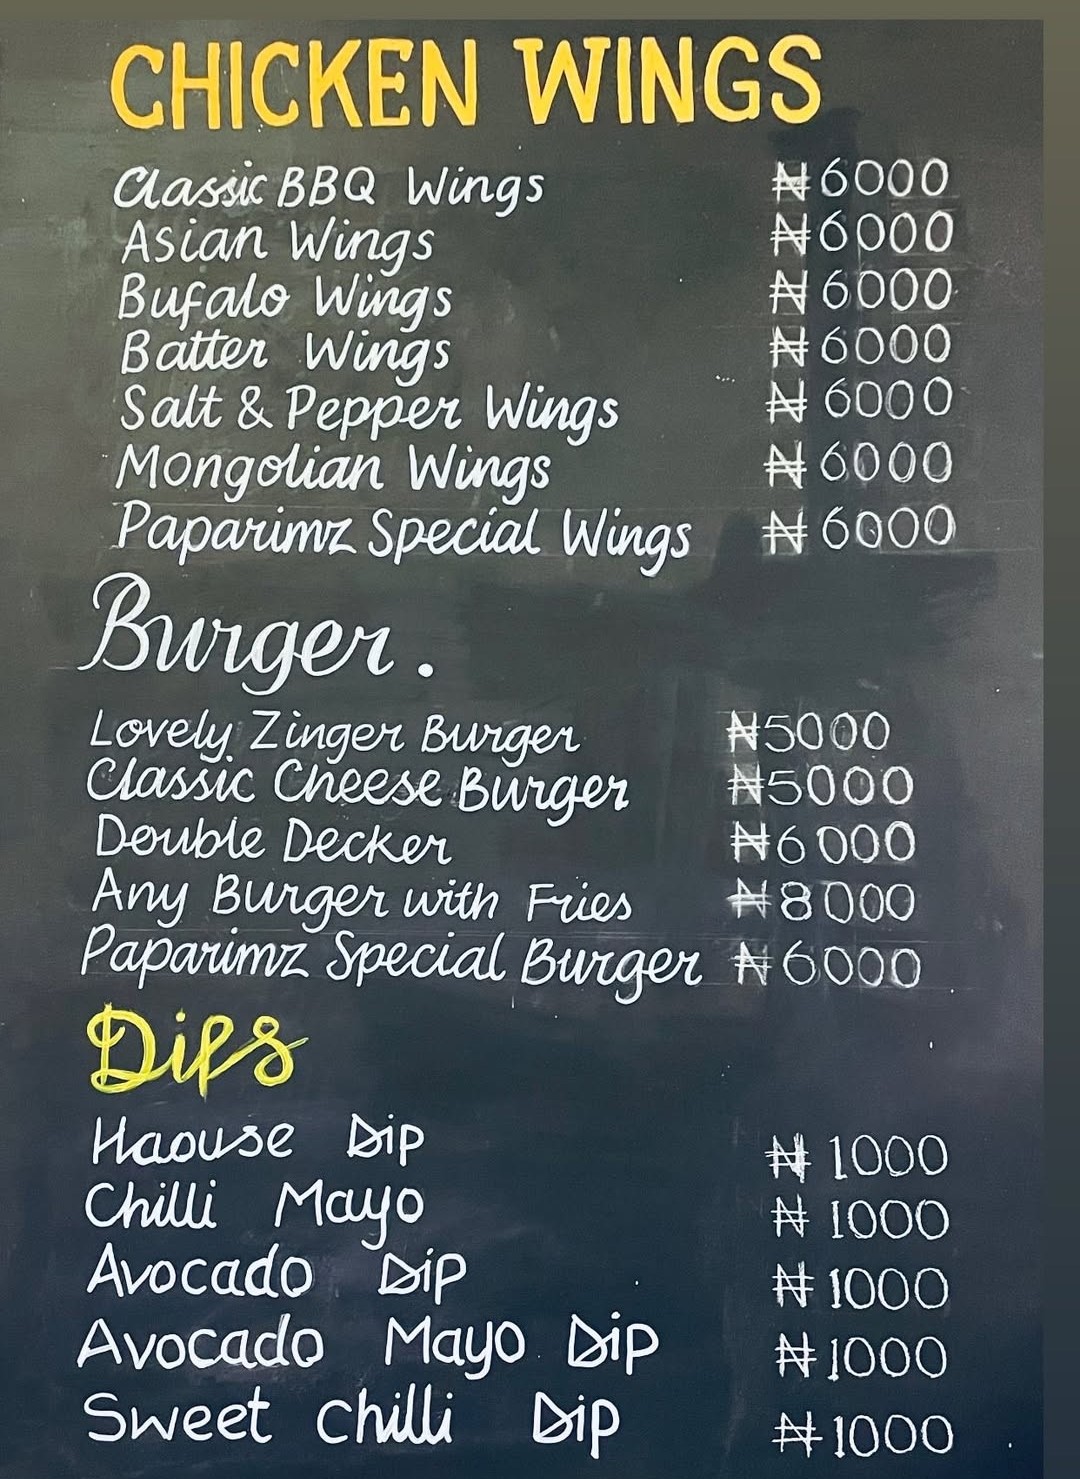 CHICKEN WINGS
Classic BBQ Wings ₦6000
Asian Wings ₦6000
Bufalo Wings ₦6000
Batter Wings ₦6000
Salt & Pepper Wings ₦6000
Mongolian Wings ₦6000
Paparimz Special Wings ₦6000
Burger.
Lovely Zinger Burger ₦5000
Classic Cheese Burger ₦5000
Double Decker ₦6000
Any Burger with Fries ₦8000
Paparimz Special Burger ₦6000
Dips
Haouse Dip ₦1000
Chilli Mayo ₦1000
Avocado Dip ₦1000
Avocado Mayo Dip ₦1000
Sweet chilli Dip ₦1000